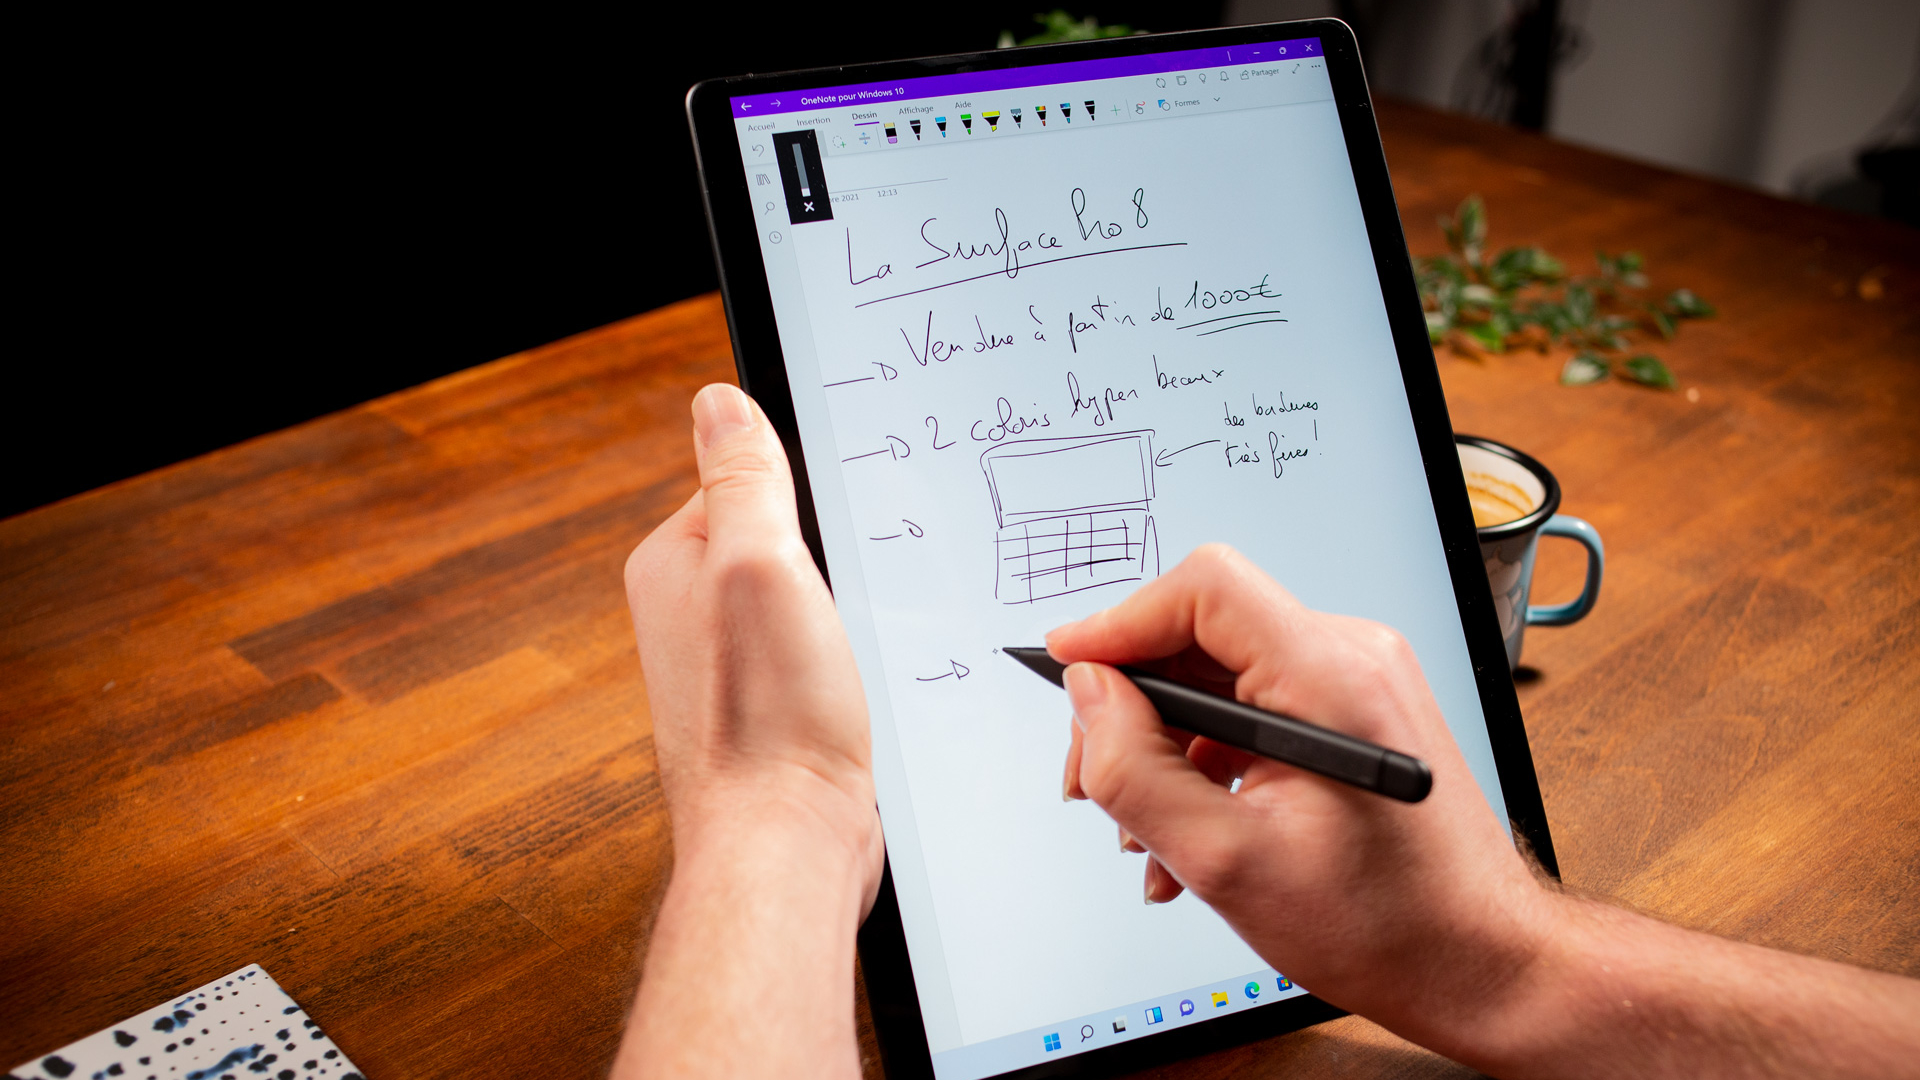 OneNote pour Windows 10
Accueil Insertion Dessin Affichage Aide
Partager
Formes
re 2021 12:13
La Surface Pro 8
Vendue à partir de 1000€
2 coloris hyper beaux
des bordures
très fines!